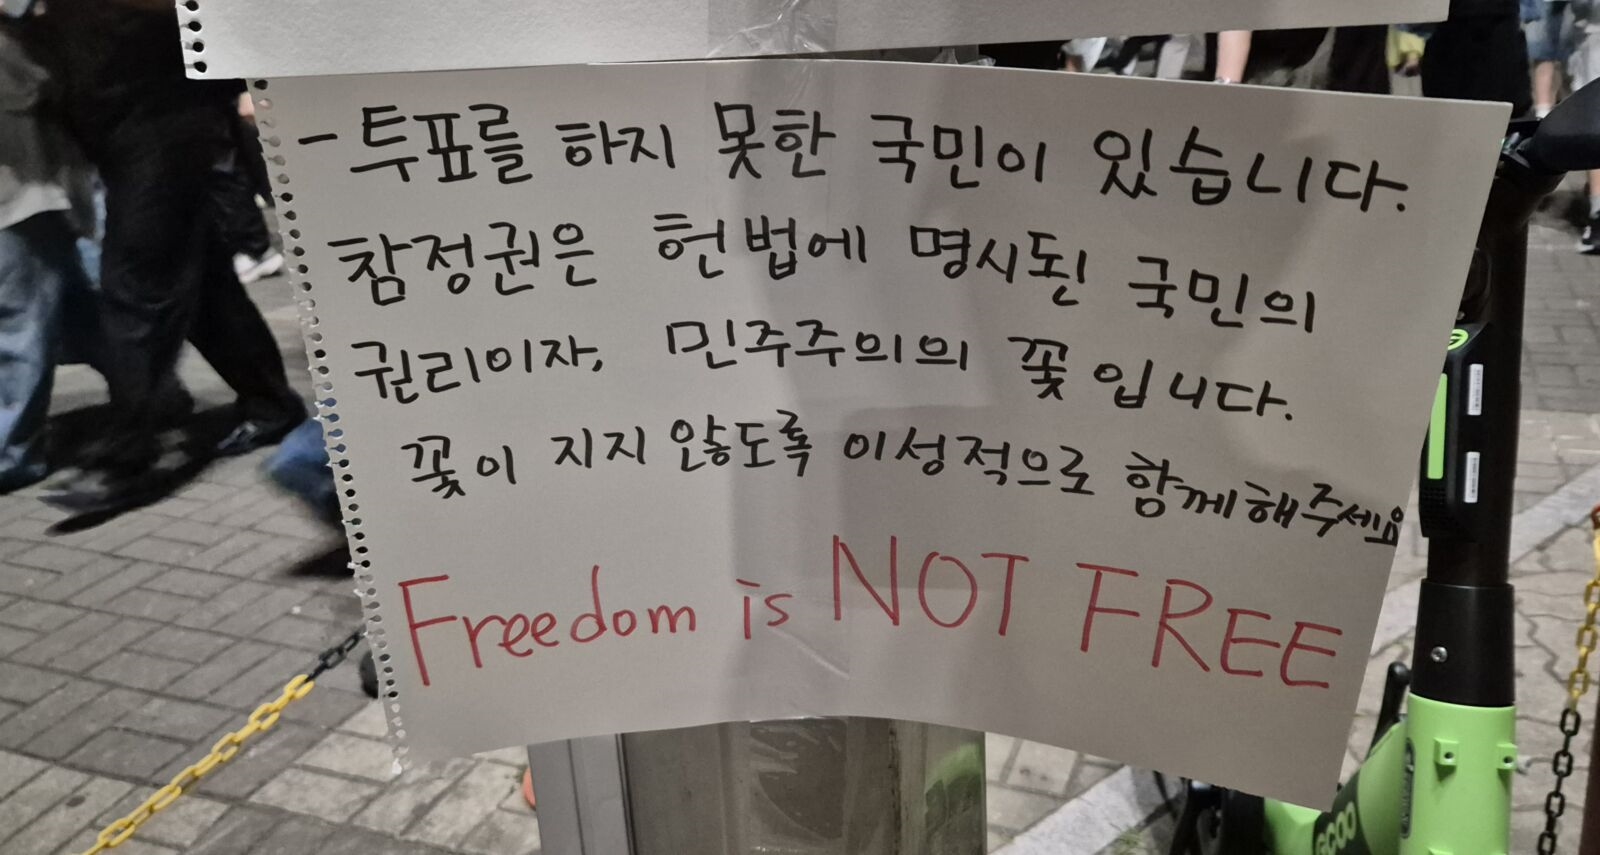 - 투표를 하지 못한 국민이 있습니다.
참정권은 헌법에 명시된 국민의
권리이자, 민주주의의 꽃입니다.
꽃이 지지 않도록 이성적으로 함께해주세요
Freedom is NOT FREE